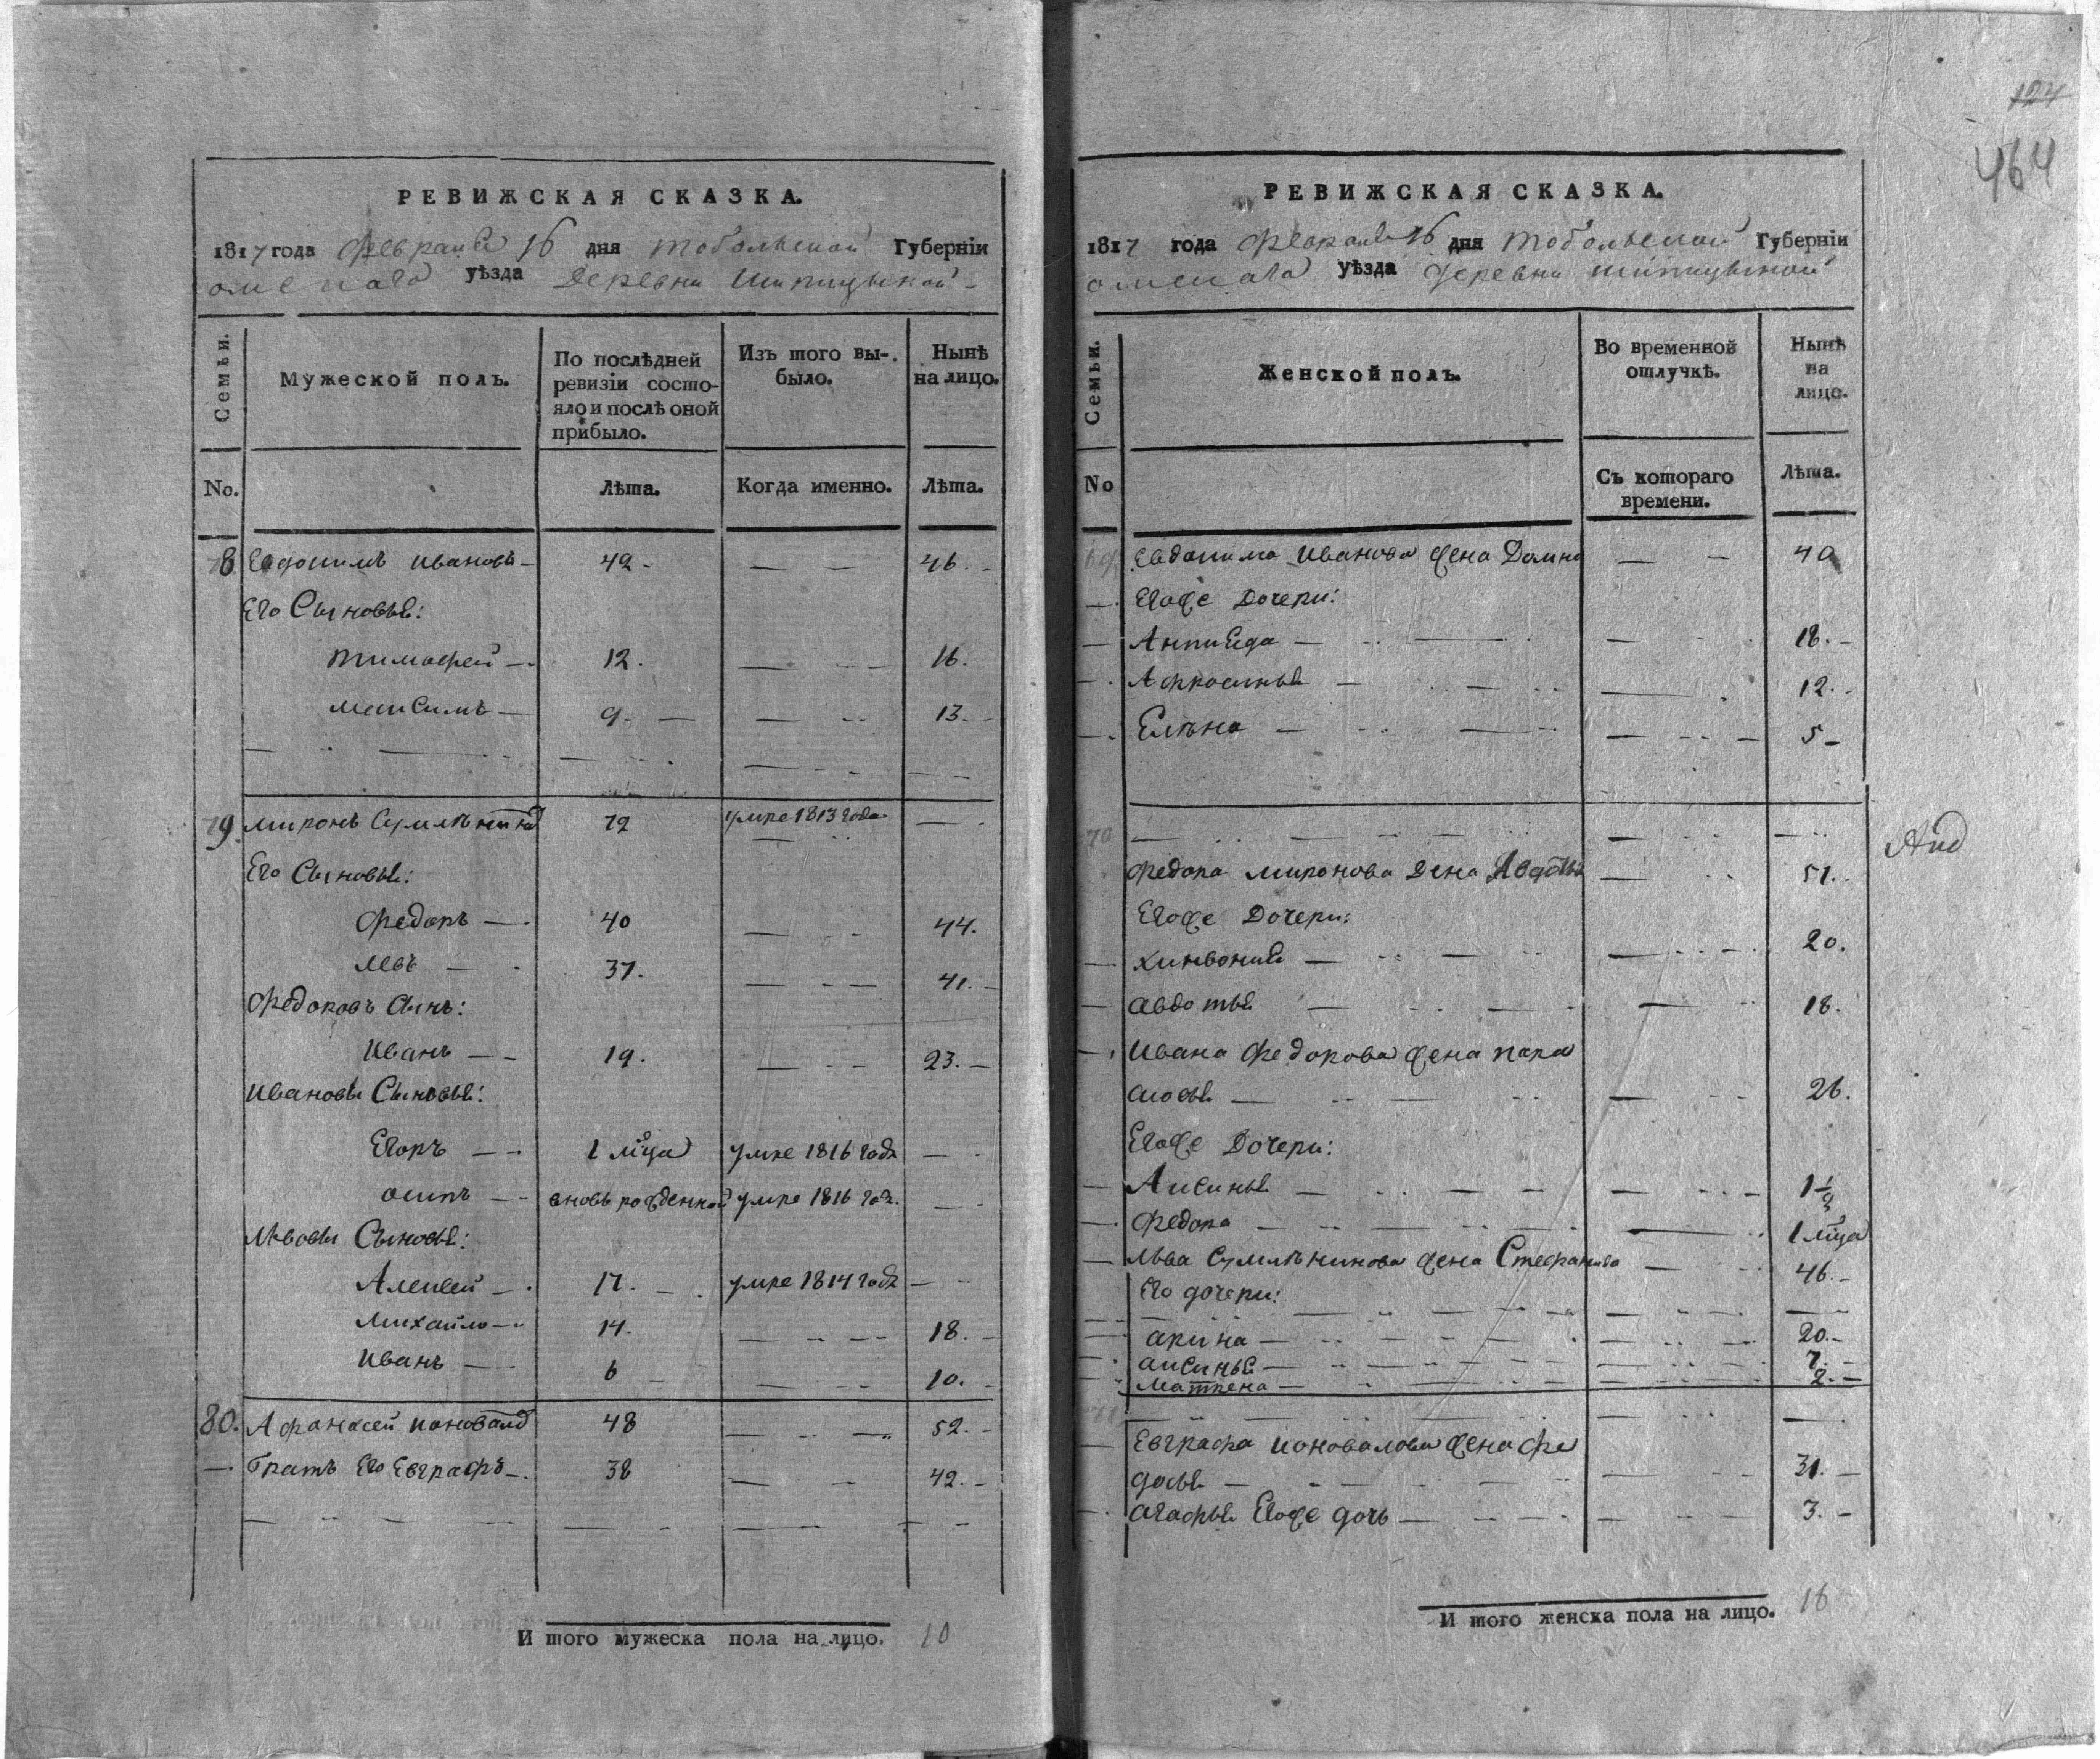 124
464
РЕВИЖСКАЯ СКАЗКА.
1817 года февраля 16 дня тобольской Губерніи
омскаго уѣзда деревни Шипицыной
Семьи.
Мужеской полъ.
По послѣдней ревизіи состо-
яло и послѣ оной прибыло.
Изъ того вы-
было.
Нынѣ
на лицо.
No.
Лѣта.
Когда именно.
Лѣта.
8 Евдокимъ Ивановъ 42 46
Его Сыновья:
Тимофей 12. 16.
Максимъ 9. 13.
79. Миронъ 72 умре 1813 года
Его Сыновья:
Федоръ 40 44.
Левъ 37. 41.
Федоровъ Сынъ:
Иванъ 19. 23.
Ивановы Сыновья:
Егоръ 1 мца умре 1816 года
Осипъ вновь рожденной умре 1816 года
Львовы Сыновья:
Алексей 17. умре 1814 года
Михайло 14. 18.
Иванъ 6 10.
80. Афонасей Коновалъ 48 52.
Братъ Его Евграфъ 38 42.
И того мужеска пола на лицо. 10
РЕВИЖСКАЯ СКАЗКА.
1817 года февраля 16 дня тобольской Губерніи
омскаго уѣзда деревни шипицыной
Семьи.
Женской полъ.
Во временной
отлучкѣ.
Нынѣ
на
лицо.
No
Съ котораго
времени.
Лѣта.
69 Евдокима Иванова жена Домна 40
Егоже Дочери:
18.
Афросинья 12.
Елѣна 5
70
Федора миронова жена Авдотья 51.
Егоже Дочери:
20.
авдотья 18.
Ивана Федорова жена пара
сковья 26.
Егоже Дочери:
Аксинья 1 1/4
Федора 1 мца
Льва жена Стефанида 46.
Его дочери:
арина 20.
аксинья 7.
матрена 2.
71
Евграфа коновалова жена фе
досья 31.
агафья Егоже дочь 3.
И того женска пола на лицо. 16